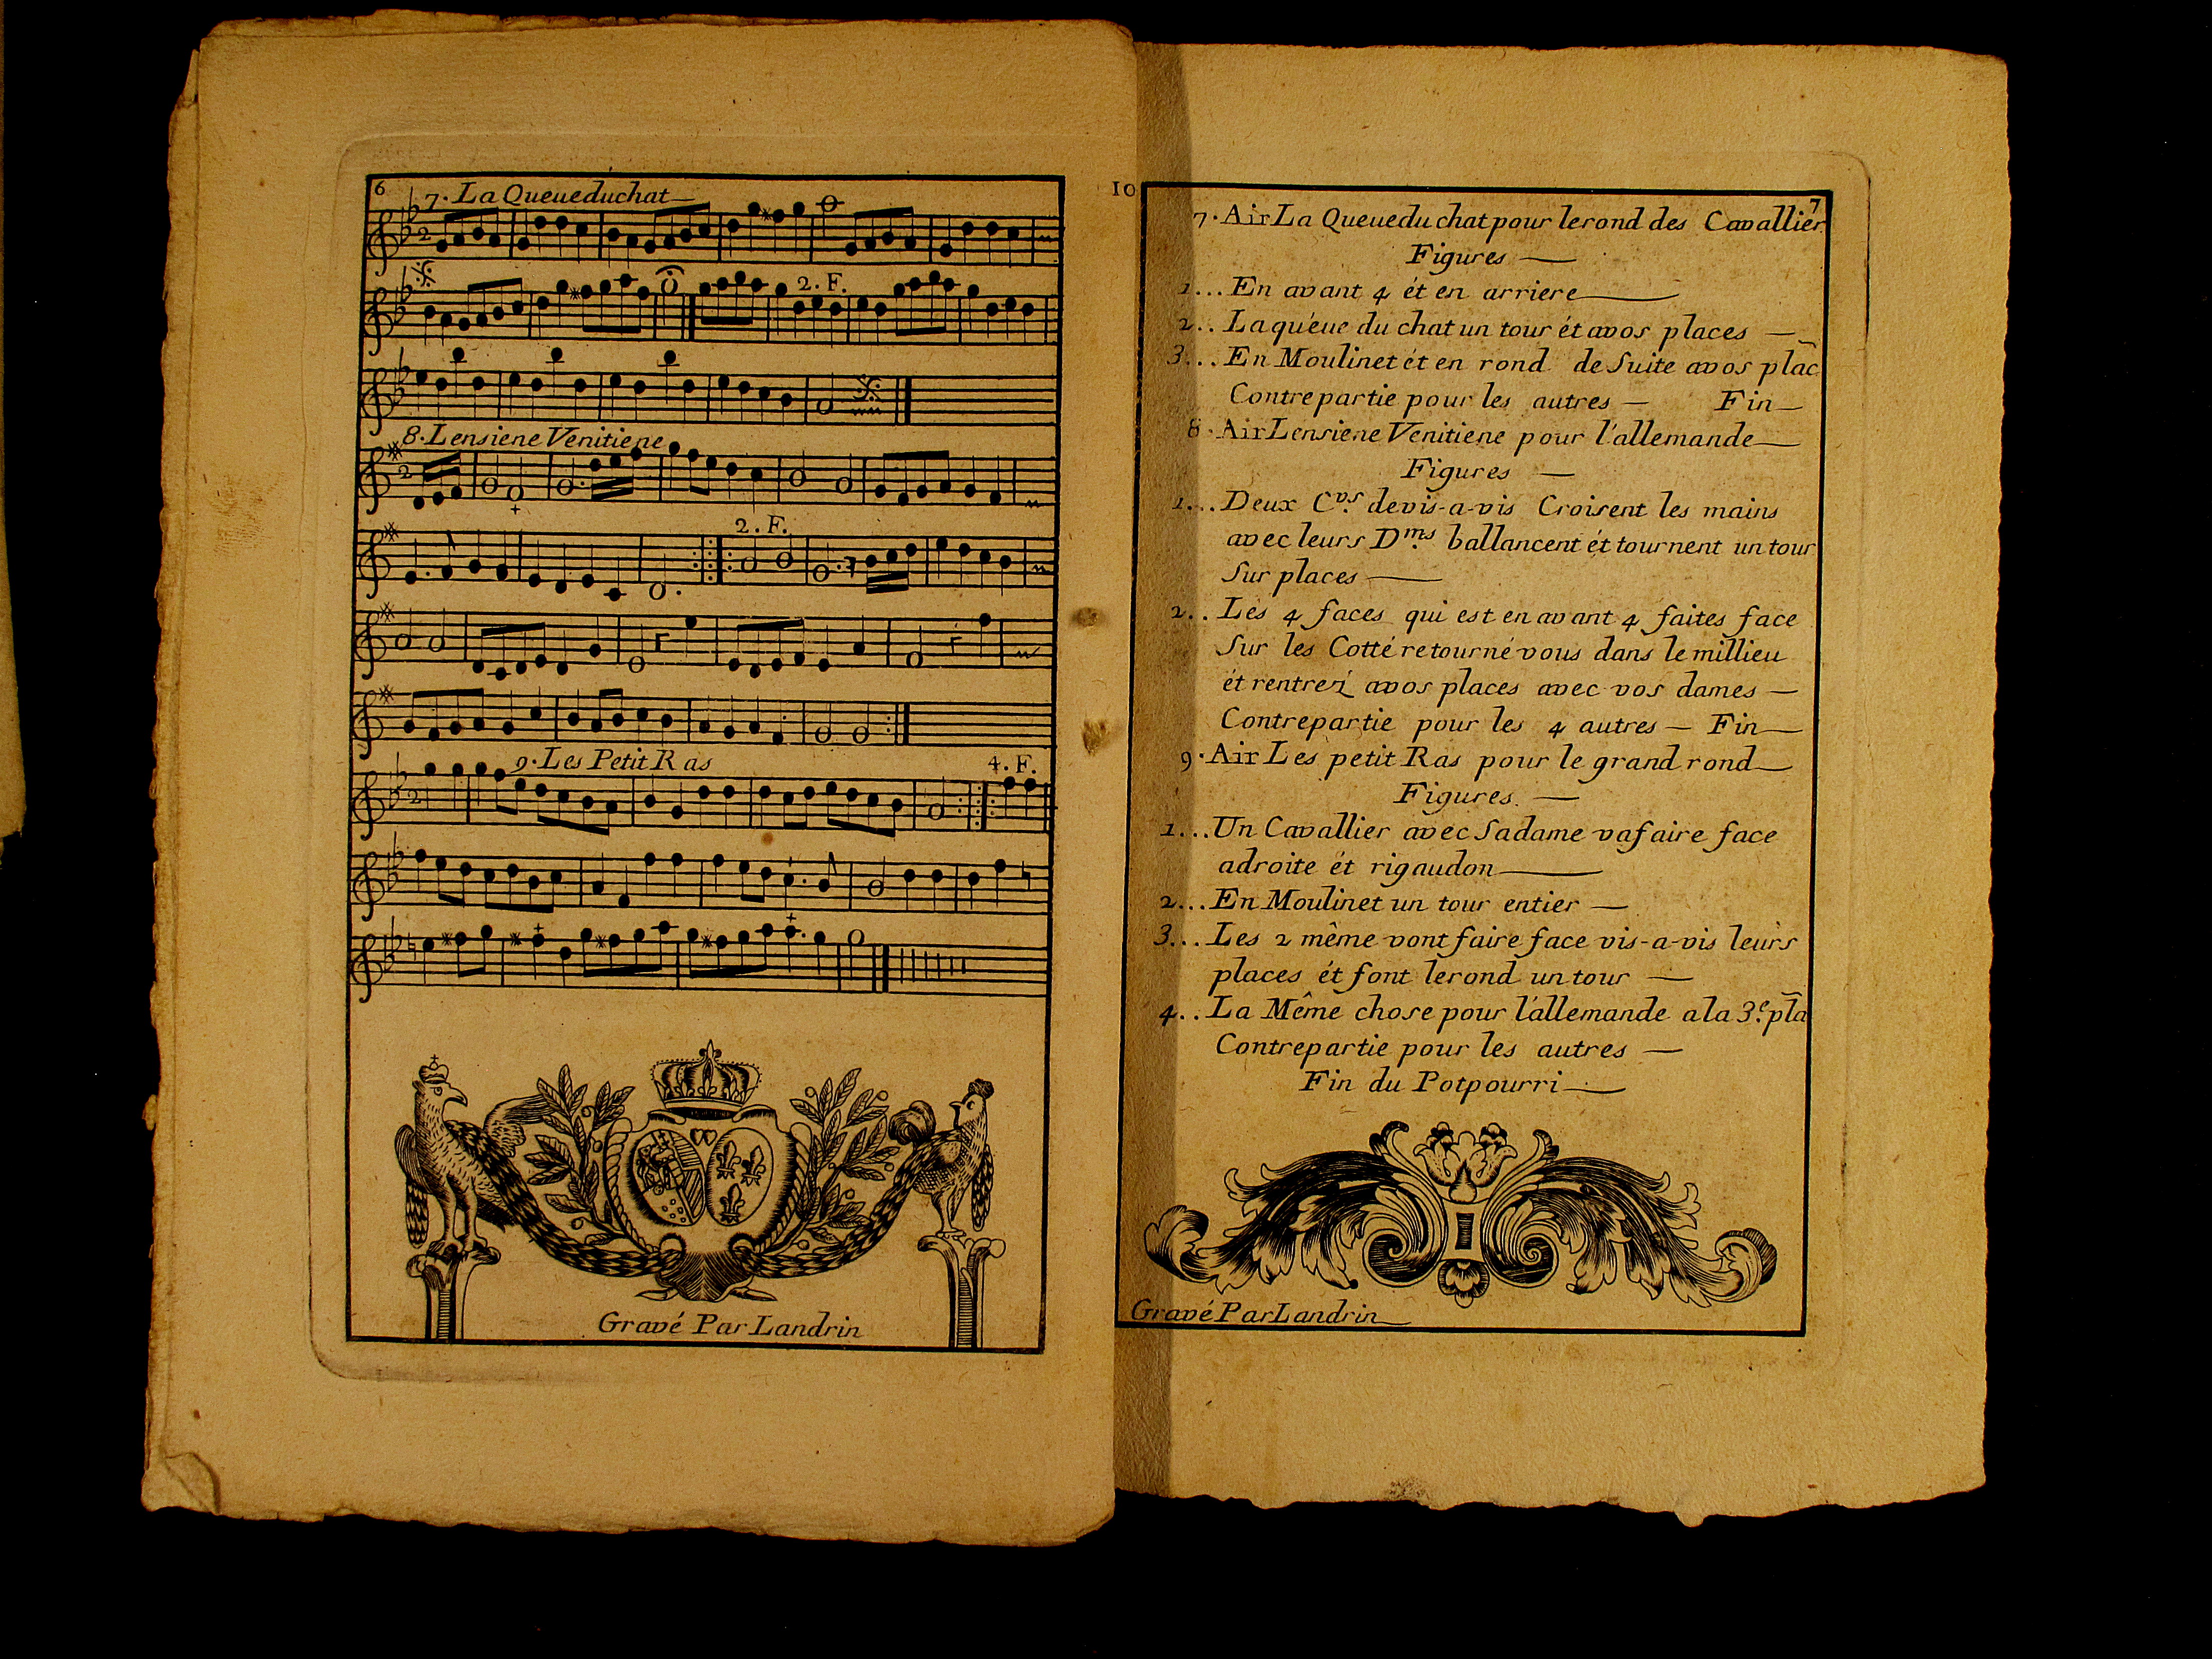 6
7. La Queue du chat
2
2. F.
8. Lensiene Venitiene
2
2. F.
9. Les Petit Ras
4. F.
2
Gravé Par Landrin
10
7
7. Air La Queue du chat pour le rond des Cavallier
Figures
1... En avant 4 ét en arriere
2.. La quéue du chat un tour ét avos places
3... En Moulinet ét en rond de Suite avos plac̃
Contrepartie pour les autres — Fin
8. Air Lensiene Venitiene pour l'allemande
Figures
1... Deux Cvs. devis-a-vis Croisent les mains
avec leurs Dms. ballancent ét tournent un tour
Sur places
2.. Les 4 faces qui est en avant 4 faites face
Sur les Cotté retourné vous dans le millieu
ét rentrez avos places avec vos dames
Contrepartie pour les 4 autres — Fin
9. Air Les petit Ras pour le grand rond
Figures.
1... Un Cavallier avec Sadame va faire face
adroite ét rigaudon
2... En Moulinet un tour entier
3... Les 2 même vont faire face vis-a-vis leurs
places ét font lerond un tour
4.. La Même chose pour l'allemande a la 3e. pla̅
Contrepartie pour les autres
Fin du Potpourri
Gravé Par Landrin